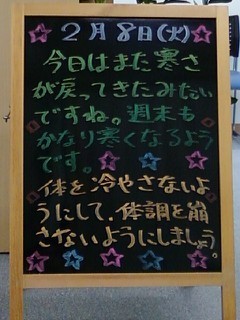 2月8日(火)
今日はまた寒さ
が戻ってきたみたい
ですね。週末も
かなり寒くなるよう
です。
体を冷やさないよ
うにして、体調を崩
さないようにしましょう。